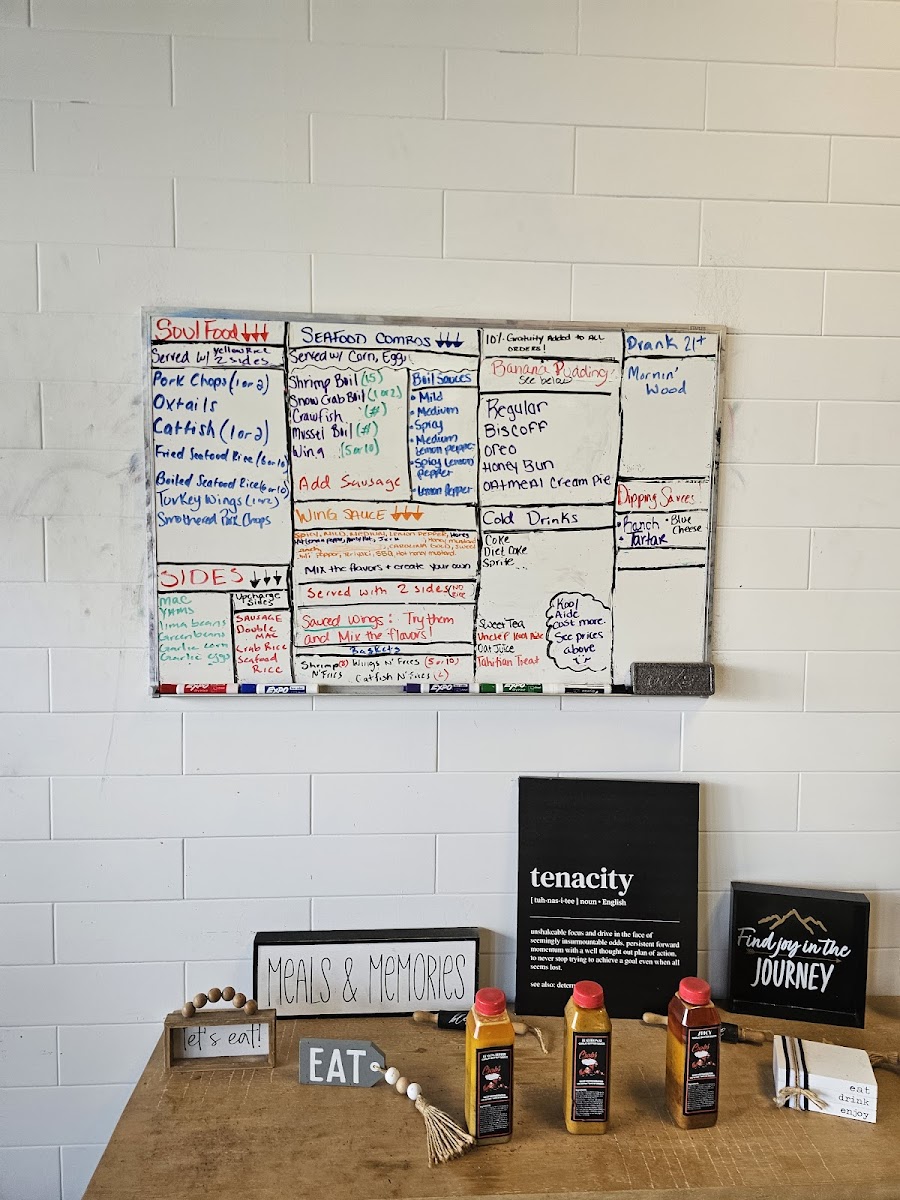 Soul Food
Served w/ Yellow Rice
2 sides
Pork Chops (1 or 2)
Oxtails
Catfish (1 or 2)
Fried Seafood Rice (6 or 10)
Boiled Seafood Rice (6 or 10)
Turkey Wings (1 or 2)
Smothered Pork Chops
SIDES
Mac
Yams
lima beans
Greenbeans
Garlic corn
Garlic eggs
Upcharge
Sides
SAUSAGE
Double
Mac
Crab Rice
Seafood
Rice
SEAFOOD COMBOS
Served w/ Corn, Egg
Shrimp Boil (15)
Snow Crab Boil (1 or 2)
Crawfish (#)
Mussel Boil (#)
Wing (5 or 10)
Add Sausage
Boil Sauces
• Mild
• Medium
• Spicy
• Medium
Lemon pepper
• Spicy Lemon
Pepper
• Lemon Pepper
WING SAUCE
SPICY, MILD, MEDIUM, LEMON PEPPER, Honey
Hot lemon pepper, Honey Hot, Jerk, honey mustard
CAROLINA GOLD, Sweet
pepper, teriyaki, BBQ, Hot honey mustard
Mix the flavors + create your own
Served with 2 sides (NO RICE
Sauced Wings: Try them
and Mix the flavors!
Baskets
Shrimp Wings N' Fries (5 or 10)
N' Fries Catfish N' Fries
10% Gratuity Added to ALL
ORDERS!
Banana Pudding!
See below
Regular
Biscoff
Oreo
Honey Bun
OATMEAL Cream Pie
Cold Drinks
Coke
Diet Coke
Sprite
Sweet Tea
Uncle P Kool Aide
Oat Juice
Tahitian Treat
Kool
Aide
cost more.
See prices
above
Drank 21+
Mornin'
Wood
Dipping Sauces
• Ranch • Blue
Cheese
• Tartar
EXPO
EXPO
EXPO
EXPO
tenacity
[ tuh-nas-i-tee ] noun • English
unshakeable focus and drive in the face of
seemingly insurmountable odds, persistent forward
momentum with a well thought out plan of action,
to never stop trying to achieve a goal even when all
seems lost.
see also: deter
Find joy in the
JOURNEY
MEALS & MEMORIES
let's eat!
EAT
JUICY
eat
drink
enjoy